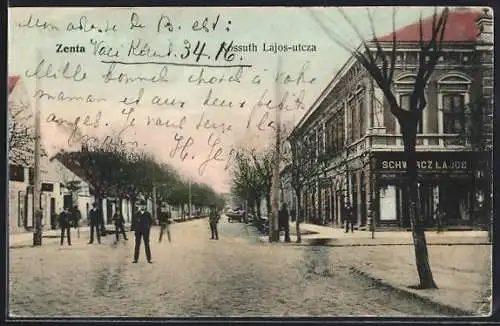 Mon adresse de B. est:
Zenta Vaci Körut. 34. IV. Kossuth Lajos-utcza
Mille bonnes choses à votre
maman et aux deux petits
anges. Je vous serre la
SCHWARCZ LAJOS